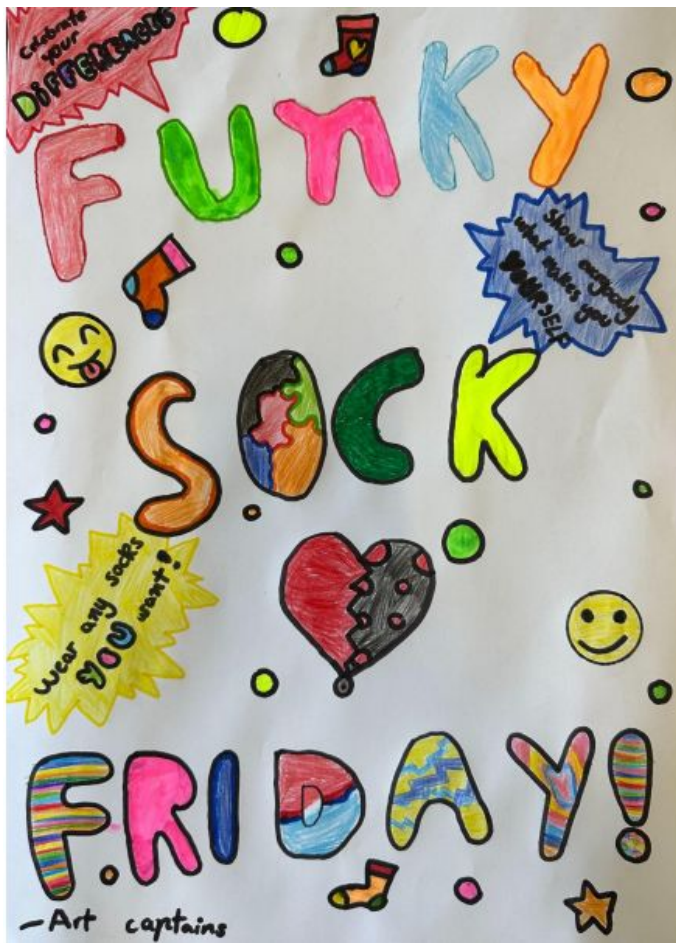 Celebrate
your
DIFFERENCES
FUNKY
Show everybody
what makes you
YOURSELF
SOCK
Wear any socks
YOU want!
FRIDAY!
-Art captains